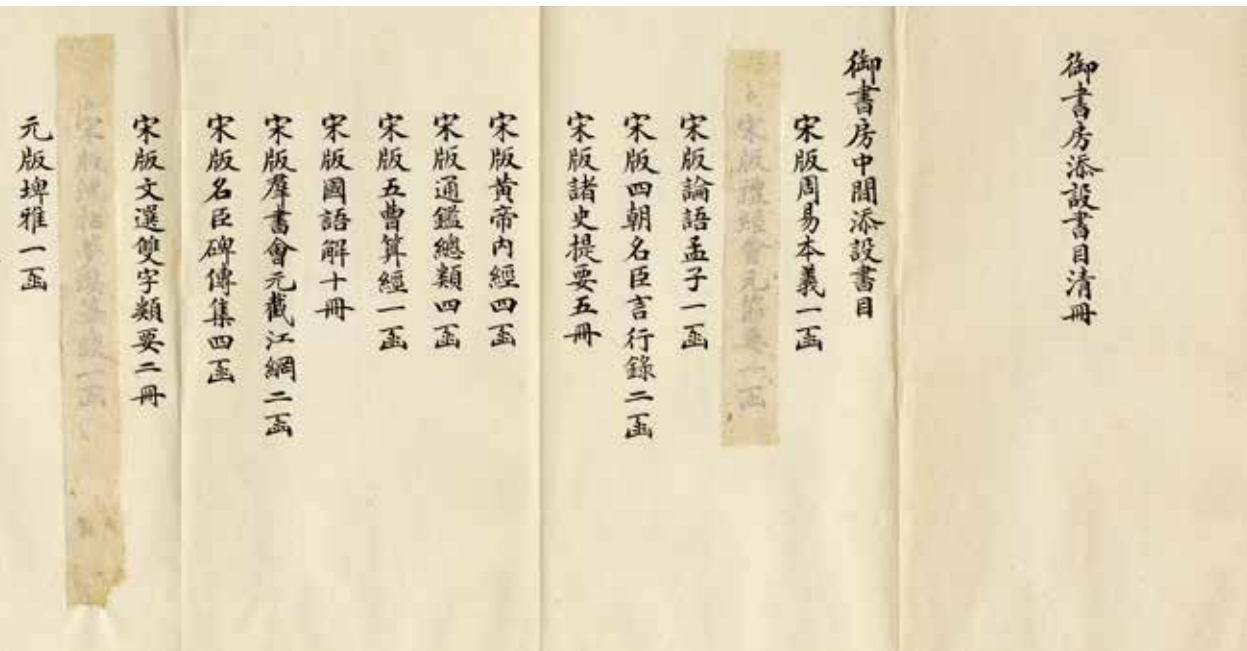 御書房添設書目清冊
御書房中間添設書目
宋版周易本義一函
宋版禮經會元節要一函
宋版論語孟子一函
宋版四朝名臣言行錄二函
宋版諸史提要五冊
宋版黃帝内經四函
宋版通鑑總類四函
宋版五曹算經一函
宋版國語解十冊
宋版羣書會元截江綱二函
宋版名臣碑傳集四函
宋版文選雙字類要二冊
宋版沈括夢溪筆談一函
元版埤雅一函